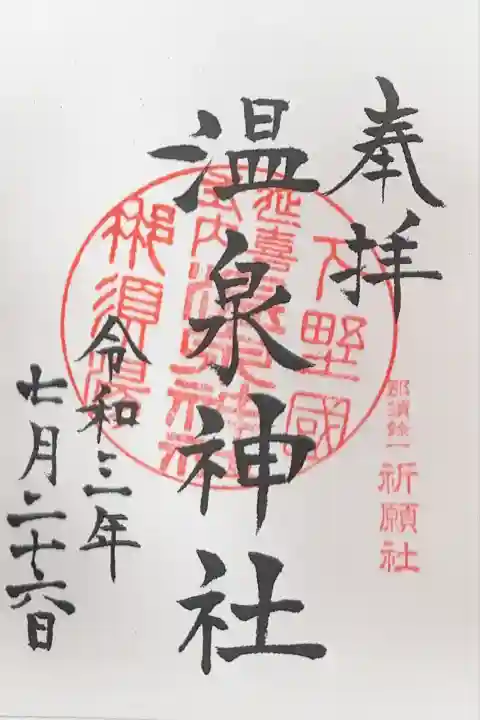 奉拝
那須余一
祈願社
下野國
延喜式内温泉神社
那須湯
温泉神社
令和三年
七月二十六日